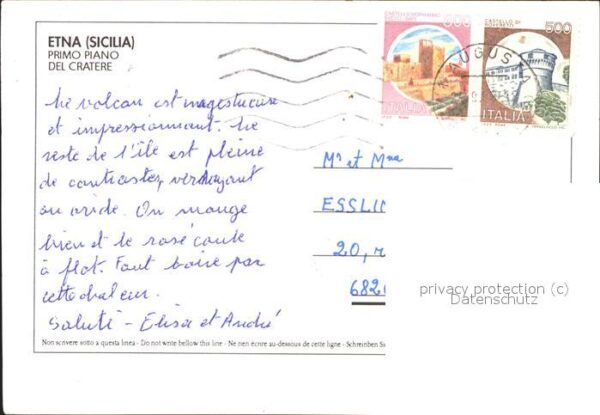 ETNA (SICILIA)
PRIMO PIANO
DEL CRATERE
CASTELLO DI
ROVERETO
500
ITALIA
ITALIA
AUGUS
Le volcan est majestueuse
et impressionnant. Le
reste de l'île est pleine
de contrastes, verdoyant
ou aride. On mange
bien et le rosé coule
à flot. Faut boire par
cette chaleur.
Saluti - Elisa et André
Mr et Mme
ESSLI
20, r
682
privacy protection (c)
Datenschutz
Non scrivere sotto a questa linea - Do not write bellow this line - Ne rien écrire au-dessous de cette ligne - Schreiben Si